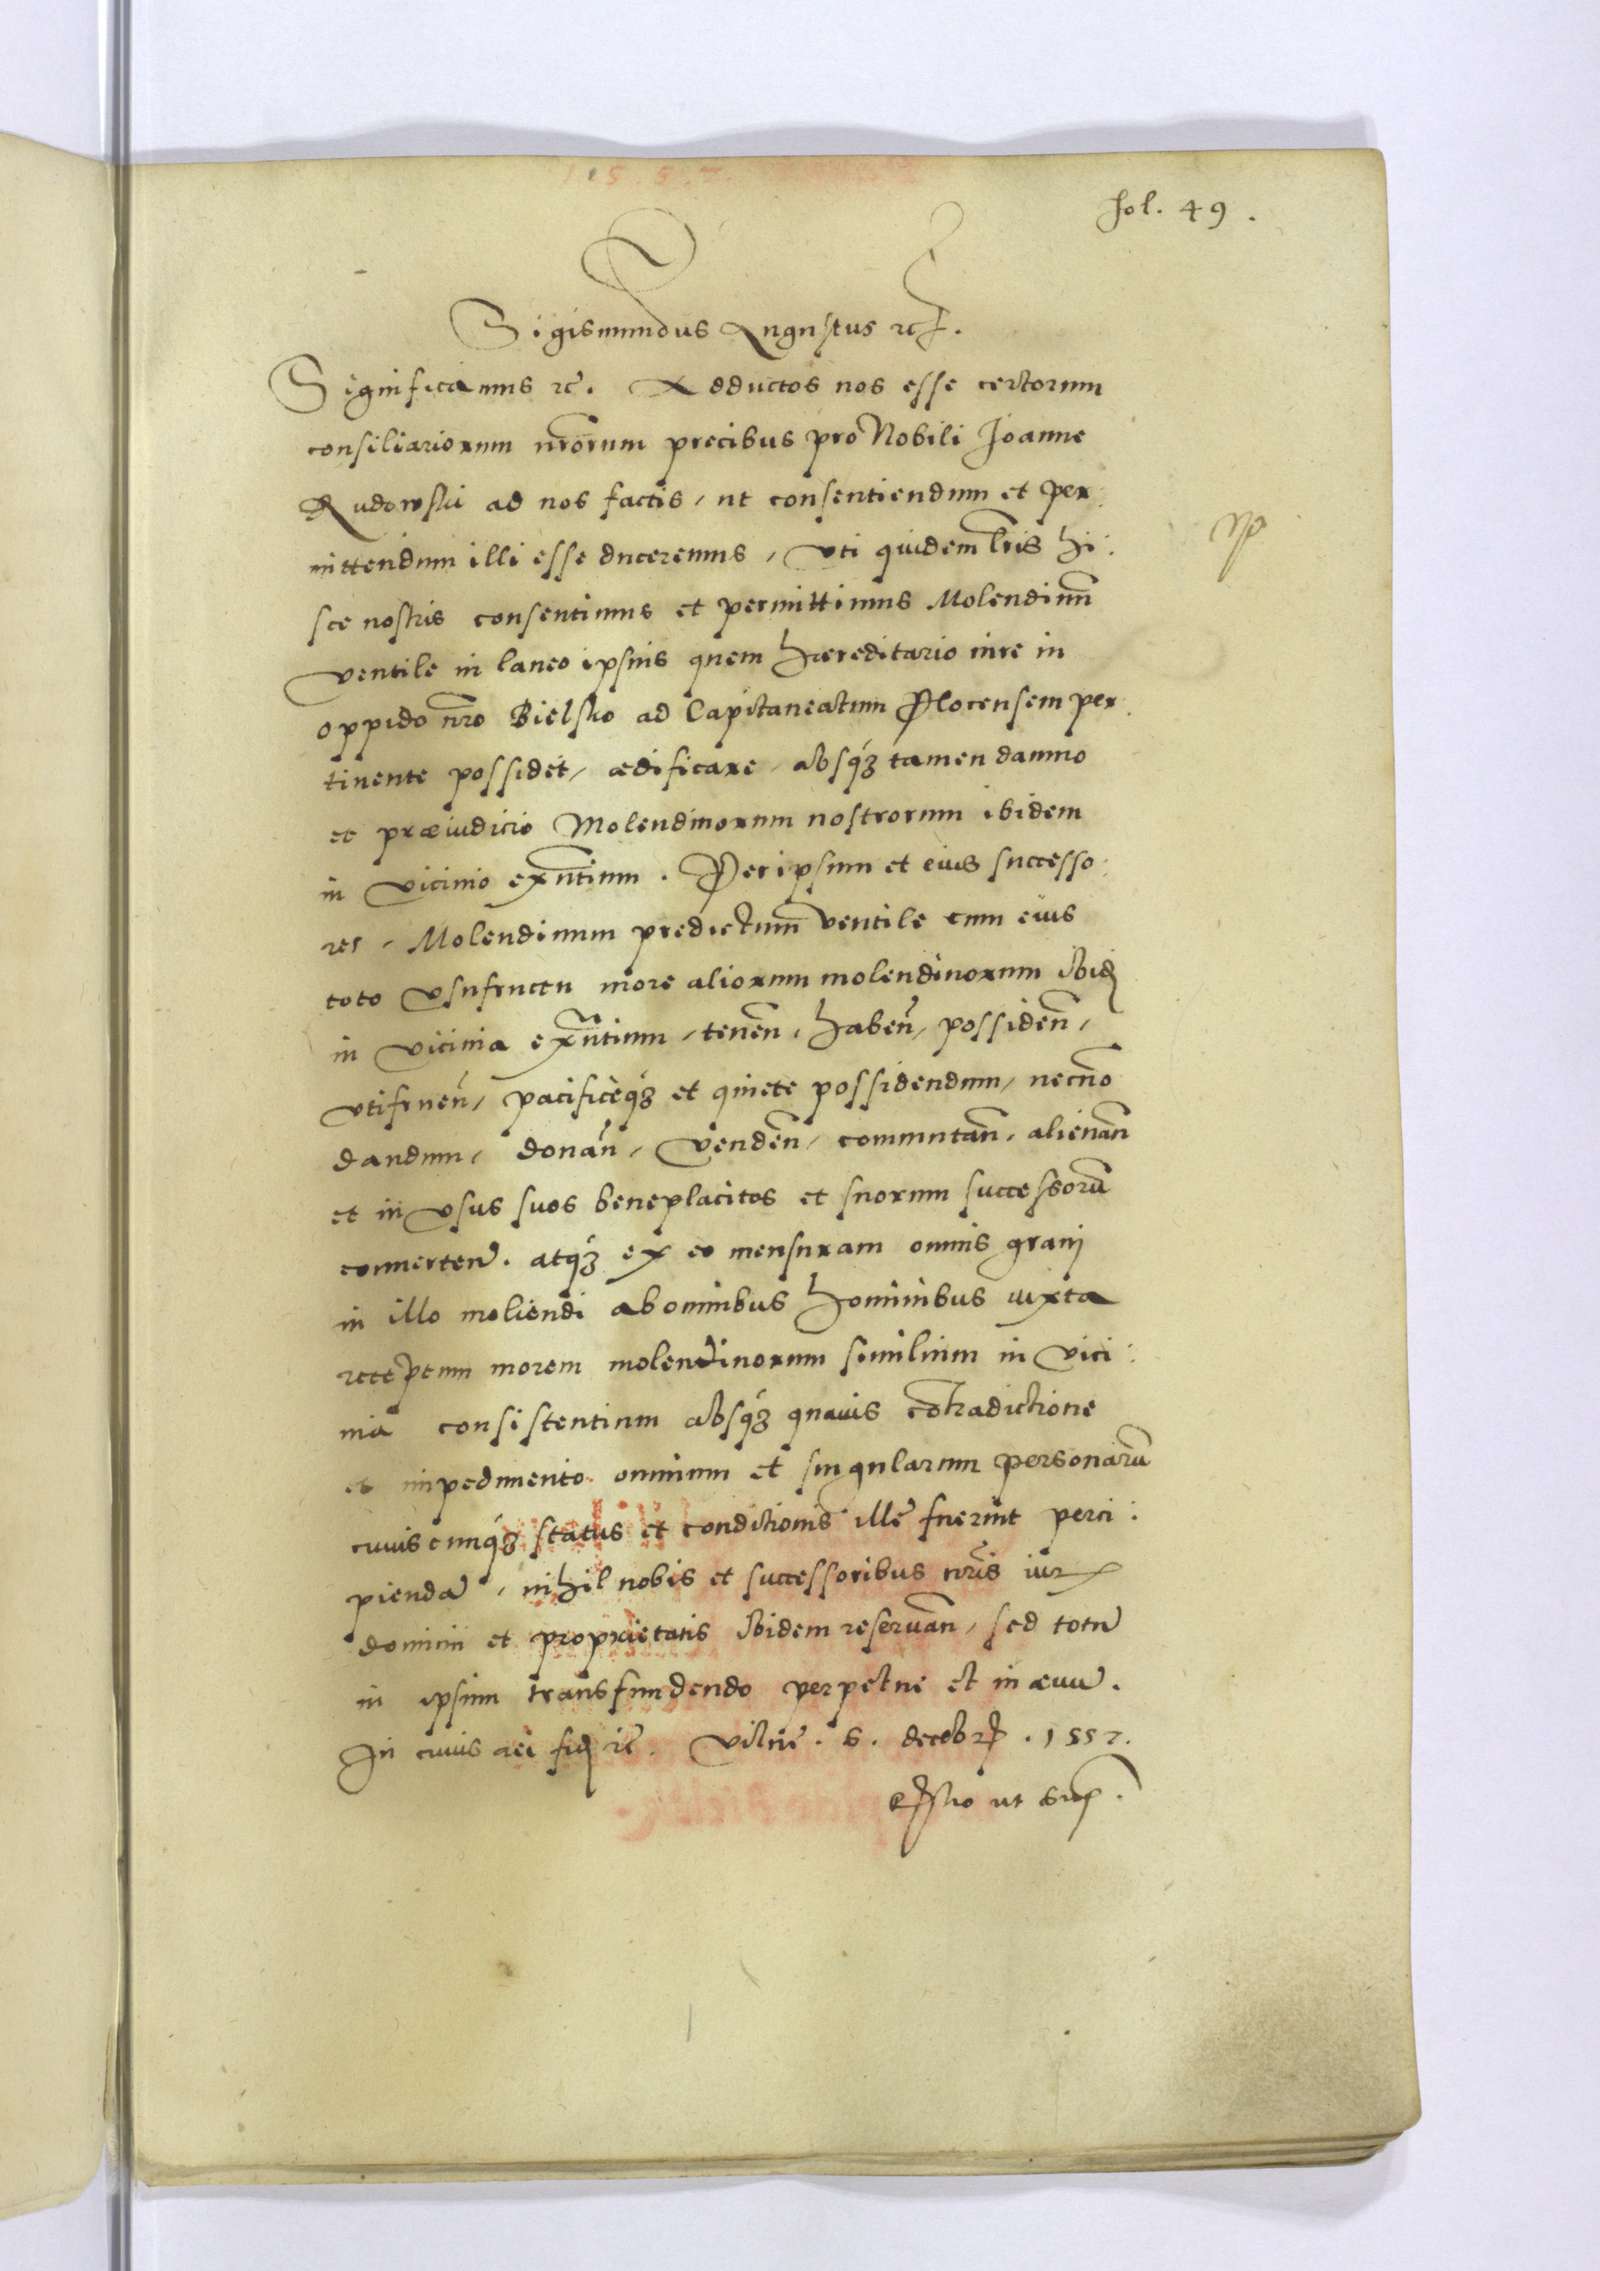 fol. 49.
Sigismundus Augustus rc.
Significamus rc. Adductos nos esse certorum
consiliariorum nrorum precibus pro Nobili Joanne
Rudowski ad nos factis, ut consentiendum et per:
mittendum illi esse duceremus, Vti quidem lris hi:
sce nostris consentimus et permittimus Molendinũ
ventile in laneo ipsius quem hæreditario iure in
oppido nro Bielsko ad Capitaneatum Plocensem per:
tinente possidet, ædificare, absqz tamen damno
et præiudicio Molendinorum nostrorum ibidem
in vicinio exñtium. Per ipsum et eius successo:
res, Molendinum predictum ventile cum eius
toto vsufructu more aliorum molendinorum ibid
in vicinia exñtium, teneñ, habeñ, possideñ,
vtifrueñ, pacificeqz et quiete possidendum, necno
dandum, donañ, vendeñ, commutañ, alienañ
et in vsus suos beneplacitos et suorum successorũ
conuerteñ. atqz ex eo mensuram omnis grani
in illo moliendi ab omnibus hominibus iuxta
receptum morem molendinorum similium in vici:
nia consistentium absqz quauis cõtradictione
et impedimento omnium et singularum personarũ
cuiuscunqz status et conditionis ille fuerint perci:
piendã, nihil nobis et successoribus nris iur
dominii et proprietatis ibidem reseruañ, sed totũ
in ipsum transfundendo perpetue et in æuũ.
In cuius rei fid rc. Vilnę. 6. decebr. 1557.
ut sup.